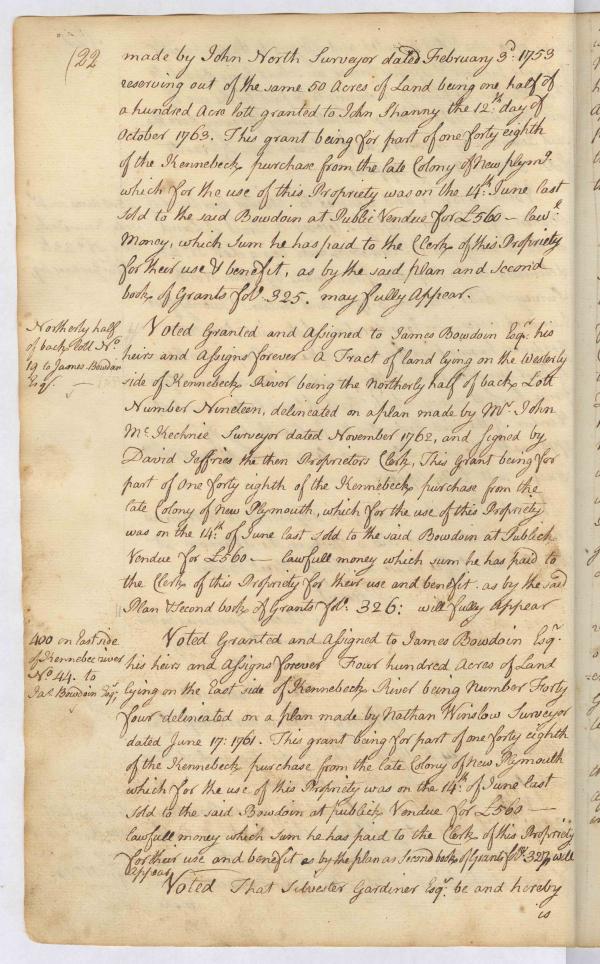 (22
made by John North Surveyor dated February 3d. 1753
reserving out of the same 50 Acres of Land being one half of
a hundred Acre lott granted to John Shanny the 12th. day of
October 1763. This grant being for part of one forty eighth
of the Kennebeck purchase from the late Colony of New plymo.
which for the use of this Propriety was on the 14th. June last
sold to the said Bowdoin at Public Vendue for £560 — lawll.
Money, which sum he has paid to the Clerk of this Propriety
for their use & benefit, as by the said plan and second
book of Grants folo. 325. may fully Appear.
Northerly half
of back Lott No.
19 to James Bowdoin
Esqr. —
Voted Granted and Assigned to James Bowdoin Esqr. his
heirs and Assigns forever A Tract of land lying on the Westerly
side of Kennebeck River being the Northerly half of back Lott
Number Nineteen, delineated on a plan made by Mr. John
Mc. Kechnie Surveyor dated November 1762, and signed by
David Jeffries the then Proprietors Clerk, This Grant being for
part of One forty eighth of the Kennebeck purchase from the
late Colony of New Plymouth, which for the use of this Propriety
was on the 14th. of June last sold to the said Bowdoin at Publick
Vendue for £560 — lawfull money which sum he has paid to
the Clerk of this Propriety for their use and benefit. as by the said
Plan & Second book of Grants folo. 326: will fully Appear
400 on East side
of Kennebec river
No. 44. to
Jas. Bowdoin Esqr.
Voted Granted and Assigned to James Bowdoin Esqr.
his heirs and Assigns forever Four hundred Acres of Land
lying on the East side of Kennebeck River being Number Forty
four delineated on a plan made by Nathan Winslow Surveyor
dated June 17: 1761. This grant being for part of one forty eighth
of the Kennebeck purchase from the late Colony of New Plymouth
which for the use of this Propriety was on the 14th. of June last
sold to the said Bowdoin at publick Vendue for £560 —
lawfull money which sum he has paid to the Clerk of this Propriety
for their use and benefit as by the plan as Second book of Grants folo. 327, will
appear
Voted That Silvester Gardiner Esqr. be and hereby
is